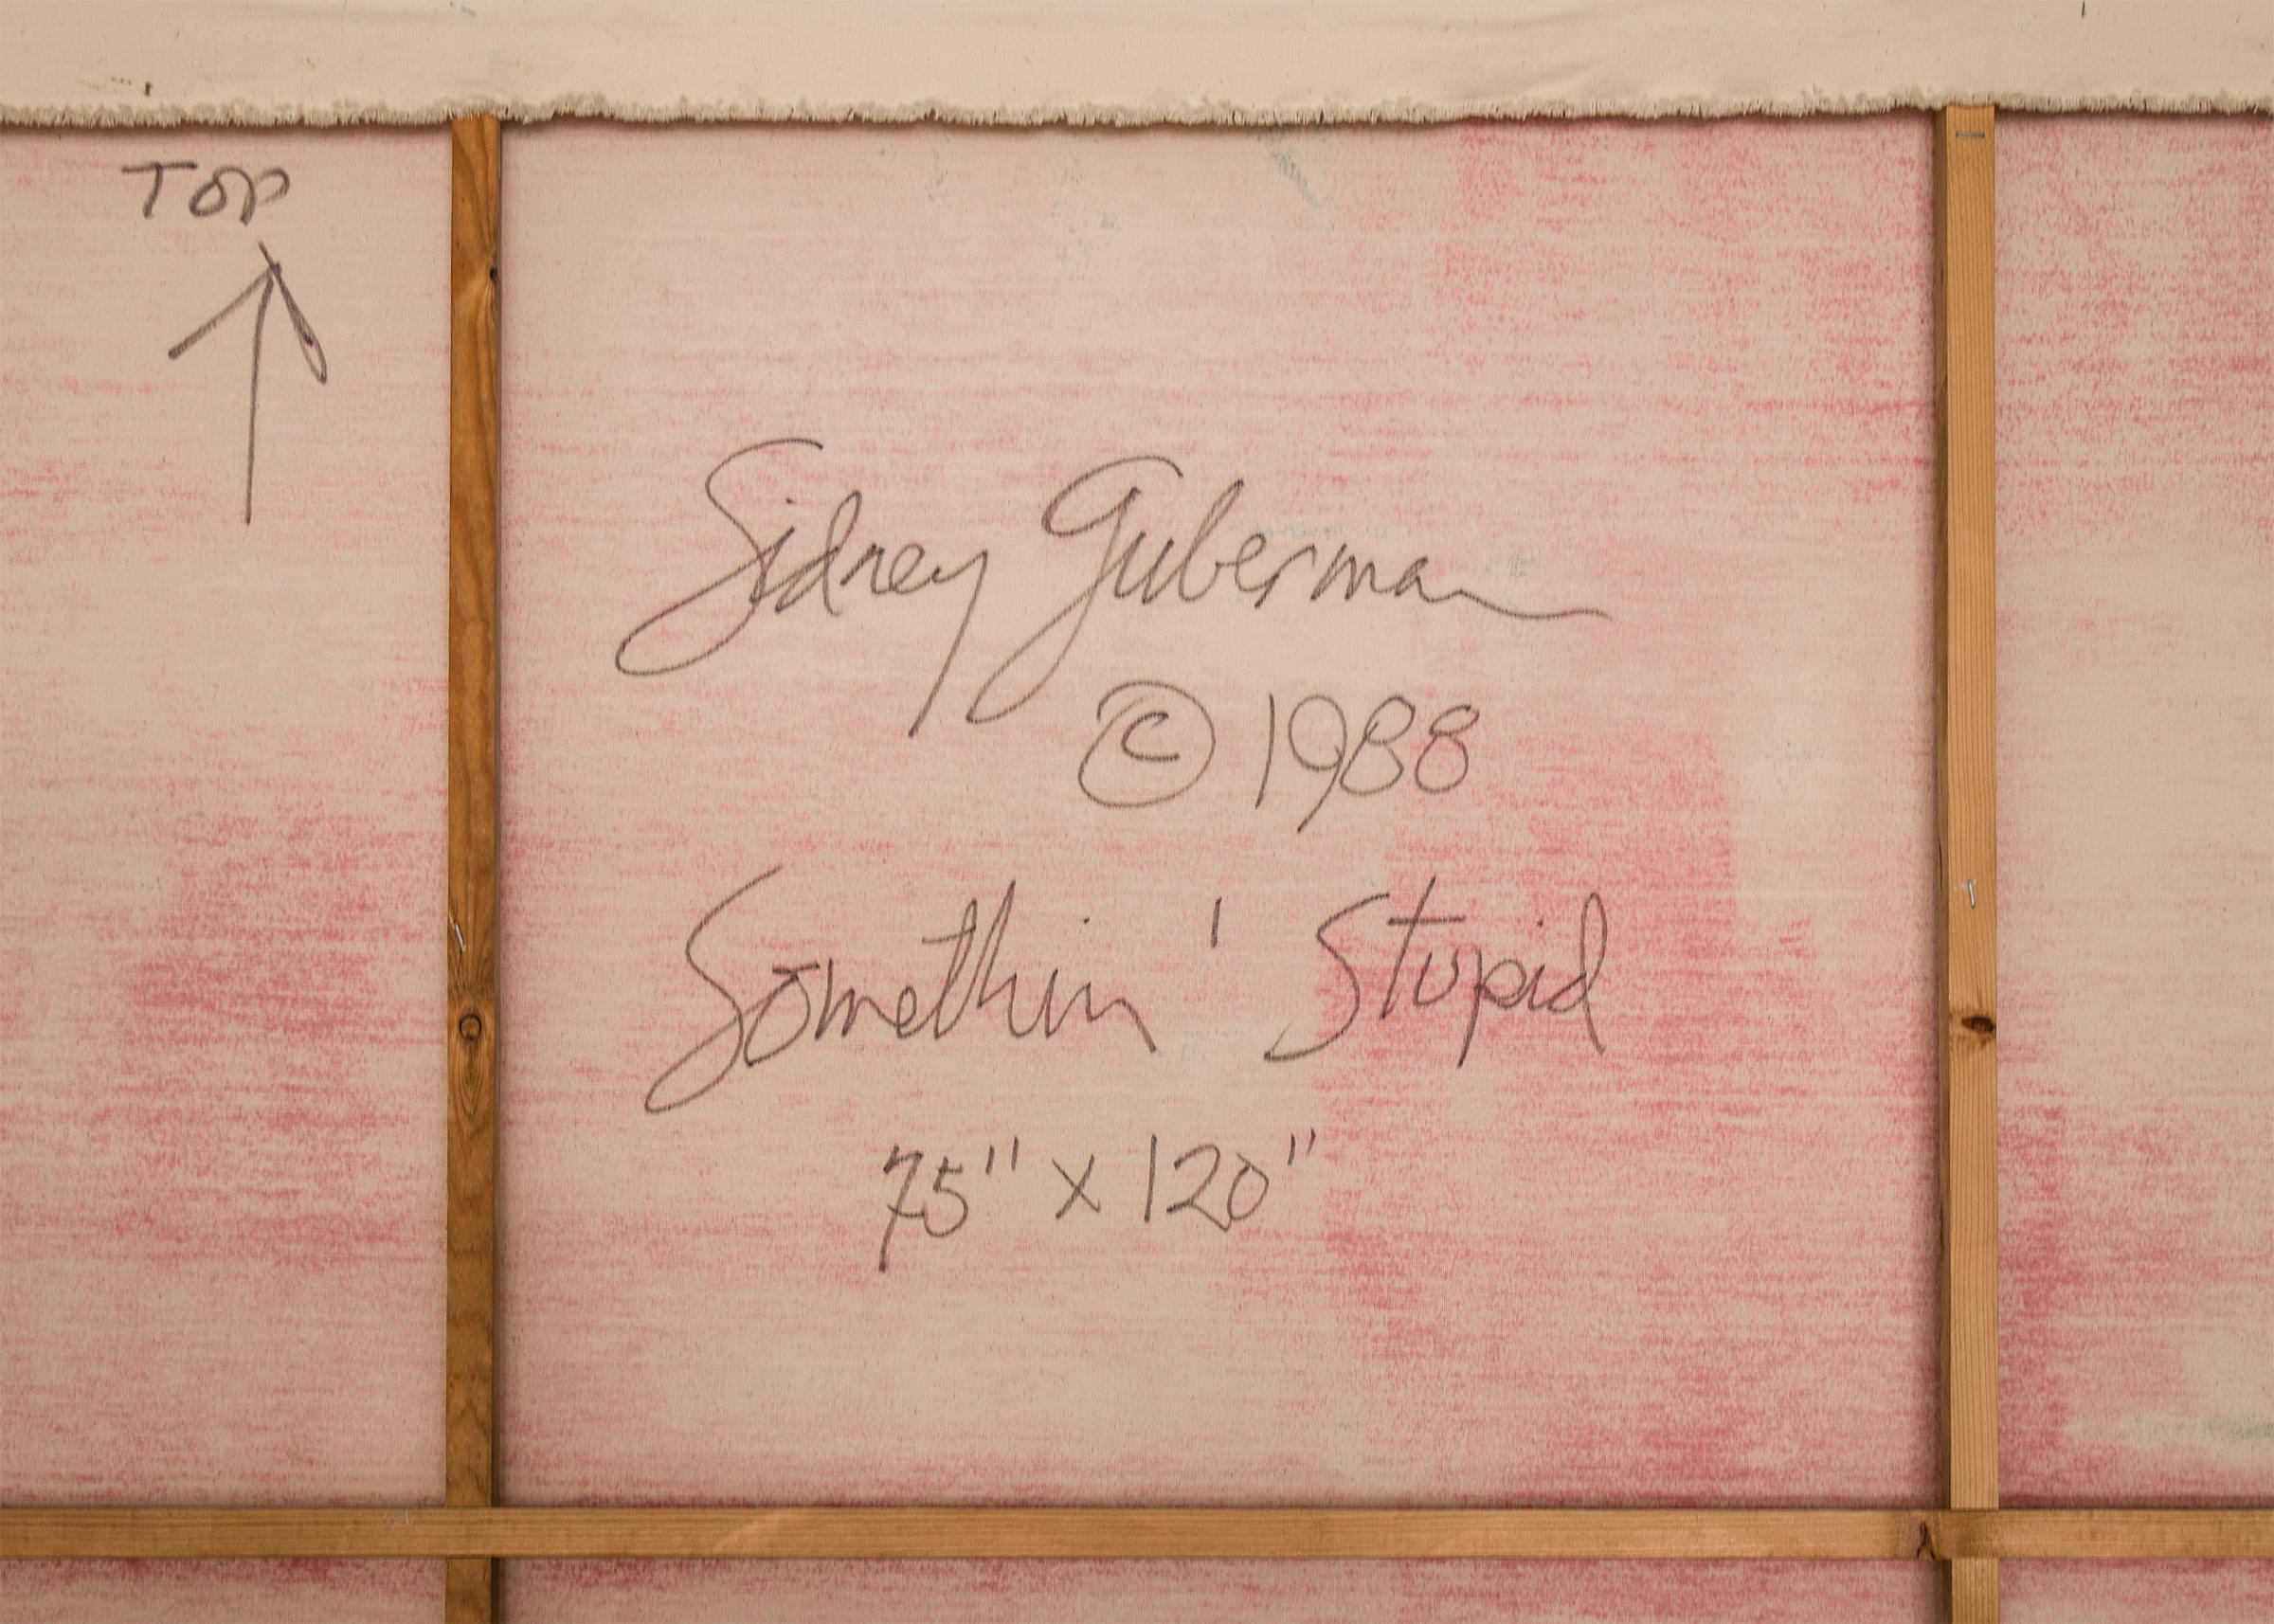 TOP
Sidney Guberman
© 1988
Somethin' Stupid
75" x 120"